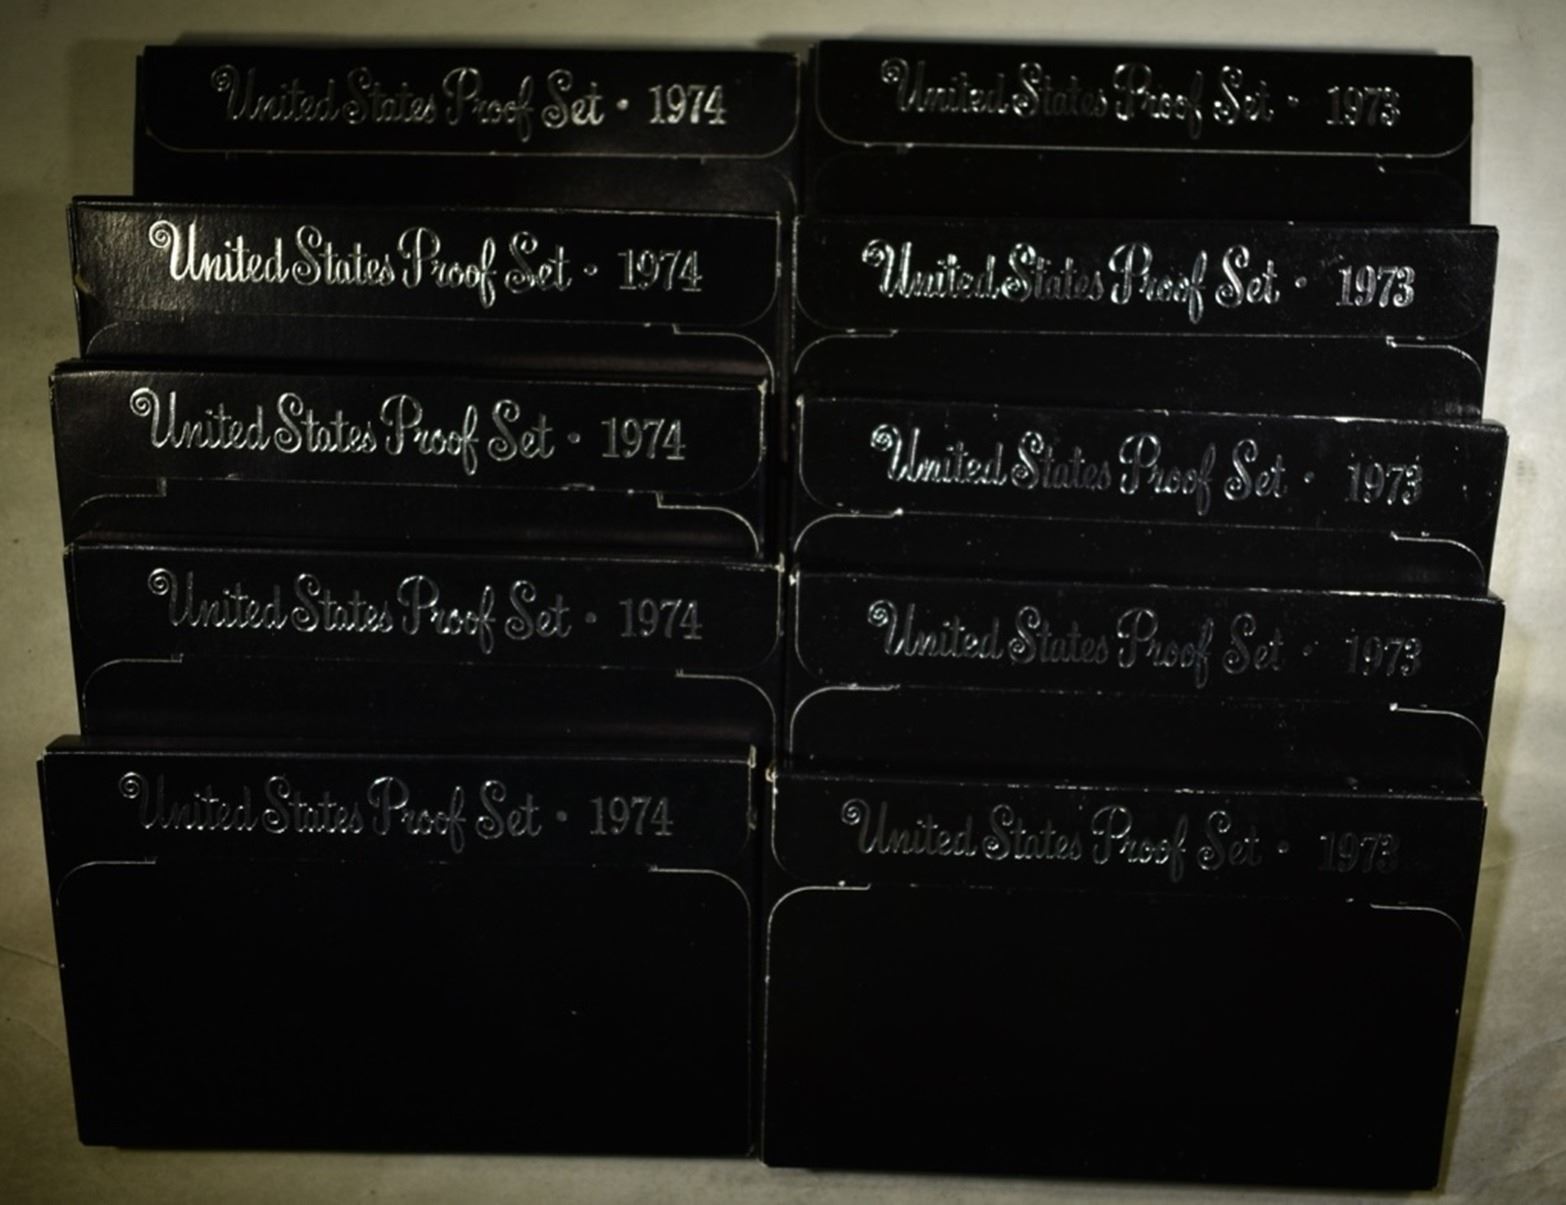 United States Proof Set • 1974
United States Proof Set • 1974
United States Proof Set • 1974
United States Proof Set • 1974
United States Proof Set • 1974
United States Proof Set • 1973
United States Proof Set • 1973
United States Proof Set • 1973
United States Proof Set • 1973
United States Proof Set • 1973